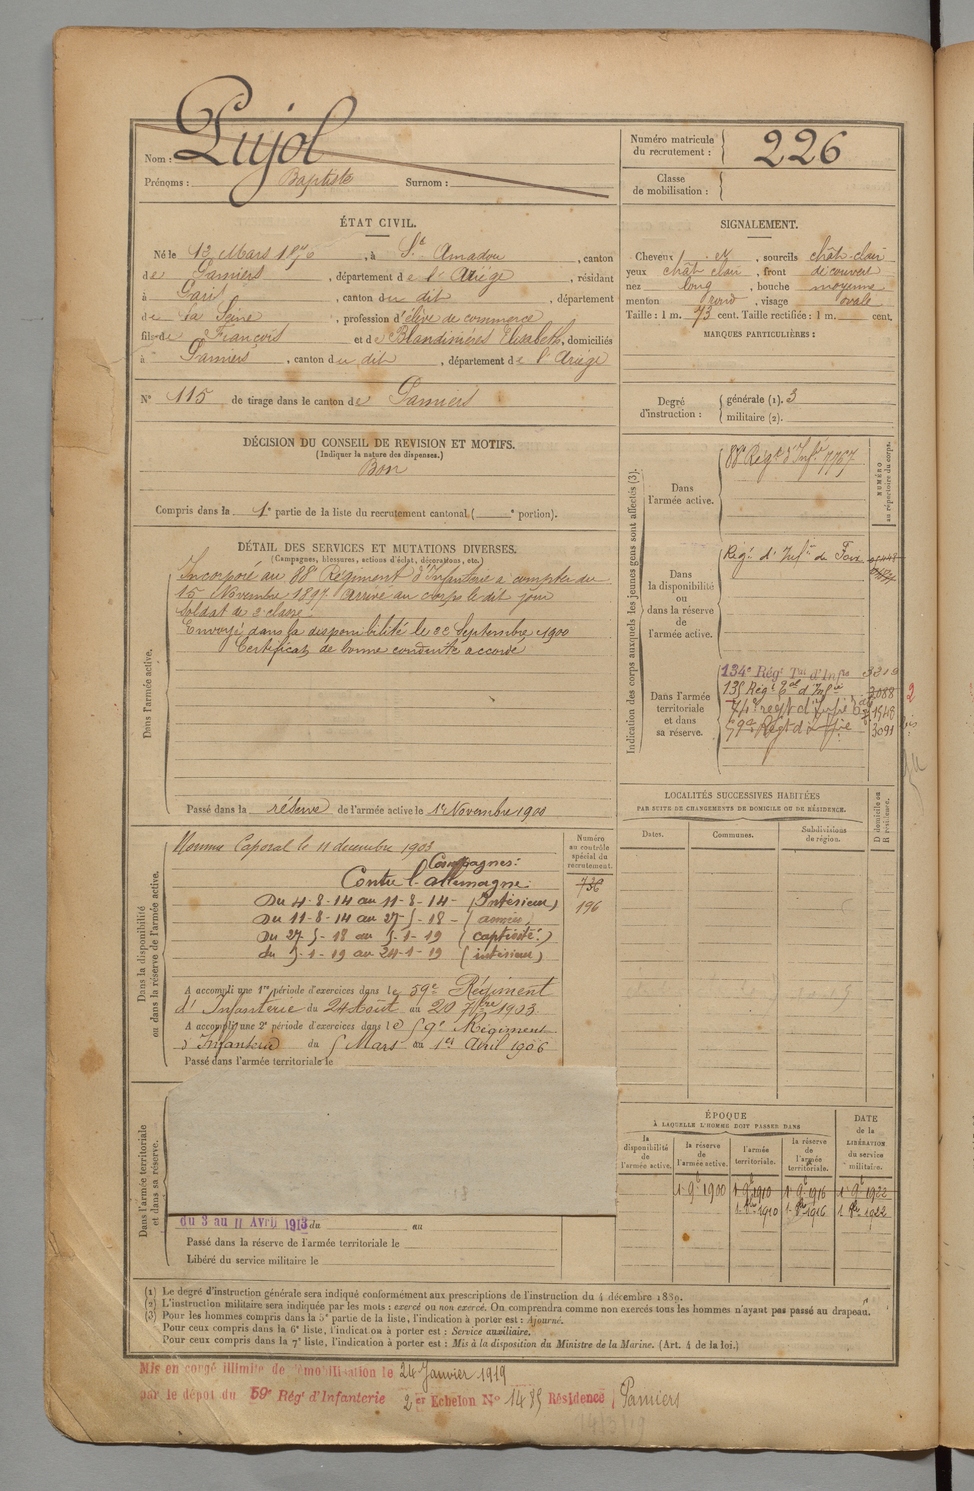 Nom : Pujol
Prénoms : Baptiste Surnom :
Numéro matricule
du recrutement : 226
Classe
de mobilisation :
ÉTAT CIVIL.
Né le 13 Mars 1876, à St Amadou, canton
de Pamiers, département de l'Ariège, résidant
à Paris, canton du dit, département
de la Seine, profession d'élève de commerce
fils de François et de Blandinières Elisabeth, domiciliés
à Pamiers, canton du dit, département de l'Ariège
N° 115 de tirage dans le canton de Pamiers
SIGNALEMENT.
Cheveux et, sourcils chât-clair
yeux chât clair, front découvert
nez long, bouche moyenne
menton rond, visage ovale
Taille : 1 m. 73 cent. Taille rectifiée : 1 m. cent.
MARQUES PARTICULIÈRES :
Degré
d'instruction :
générale (1). 3
militaire (2).
DÉCISION DU CONSEIL DE REVISION ET MOTIFS.
(Indiquer la nature des dispenses.)
Bon
Compris dans la 1e partie de la liste du recrutement cantonal (e portion).
DÉTAIL DES SERVICES ET MUTATIONS DIVERSES.
(Campagnes, blessures, actions d'éclat, décorations, etc.)
Dans l'armée active.
Incorporé au 88e Régiment d'Infanterie à compter du
15 Novembre 1897. Arrivé au corps le dit jour
Soldat de 2e classe.
Envoyé dans la disponibilité le 22 Septembre 1900
Certificat de bonne conduite accordé
Passé dans la réserve de l'armée active le 1er Novembre 1900
Indication des corps auxquels les jeunes gens sont affectés (3).
NUMÉRO
au répertoire du corps.
Dans
l'armée active.
88e Régt d'Infie 7767
Dans
la disponibilité
ou
dans la réserve
de
l'armée active.
Régt d'Infie de Foix
Dans l'armée
territoriale
et dans
sa réserve.
134e Régt Tal d'Infie 3219
135 Régt Tal d'Infie 3088
74e regt d'Infie 1548
59e Régt d'Infie 3091
LOCALITÉS SUCCESSIVES HABITÉES
PAR SUITE DE CHANGEMENTS DE DOMICILE OU DE RÉSIDENCE.
Dates.
Communes.
Subdivisions
de région.
D domicile ou
R résidence.
Dans la disponibilité
ou dans la réserve de l'armée active.
Nommé Caporal le 11 décembre 1903
Campagnes :
Contre l'allemagne :
Du 4-8-14 au 11-8-14 - (Intérieur)
Du 11-8-14 au 27-5-18 - (armées)
Du 27-5-18 au 5-1-19 (captivité.)
du 5-1-19 au 24-1-19 (intérieur)
Numéro
au contrôle
spécial du
recrutement.
736
196
A accompli une 1re période d'exercices dans le 59e Régiment
d'Infanterie du 24 Août au 20 7bre 1903.
A accompli une 2e période d'exercices dans le 59e Régiment
d'Infanterie du 5 Mars au 1er Avril 1906
Passé dans l'armée territoriale le
Dans l'armée territoriale
et dans sa réserve.
du 3 au 11 Avril 1913 du au
Passé dans la réserve de l'armée territoriale le
Libéré du service militaire le
ÉPOQUE
À LAQUELLE L'HOMME DOIT PASSER DANS
la
disponibilité
de
l'armée active.
la réserve
de
l'armée active.
l'armée
territoriale.
la réserve
de
l'armée
territoriale.
DATE
de la
LIBÉRATION
du service
militaire.
1er 9bre 1900 1er 9bre 1910 1er 9bre 1916 1er 9bre 1922
1er 8bre 1910 1er 8bre 1916 1er 8bre 1922
(1) Le degré d'instruction générale sera indiqué conformément aux prescriptions de l'instruction du 4 décembre 1889.
(2) L'instruction militaire sera indiquée par les mots : exercé ou non exercé. On comprendra comme non exercés tous les hommes n'ayant pas passé au drapeau.
(3) Pour les hommes compris dans la 5e partie de la liste, l'indication à porter est : Ajourné.
Pour ceux compris dans la 6e liste, l'indication à porter est : Service auxiliaire.
Pour ceux compris dans la 7e liste, l'indication à porter est : Mis à la disposition du Ministre de la Marine. (Art. 4 de la loi.)
Mis en congé illimité de démobilisation le 24 Janvier 1919
par le dépôt du 59e Régt d'Infanterie 2er Echelon N° 1435 Résidence Pamiers